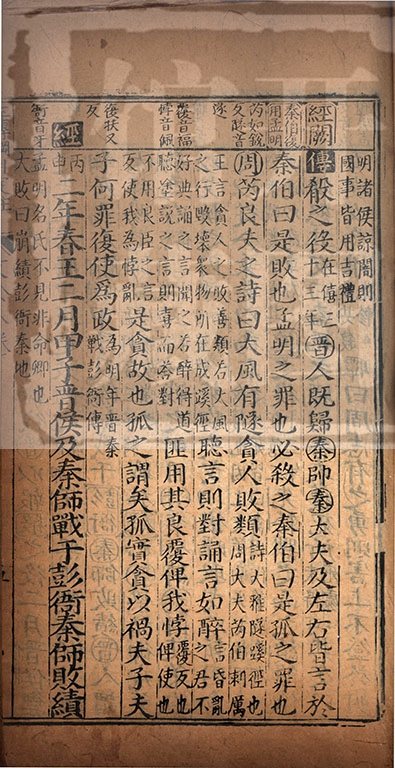 明諸侯諒闇則
國事皆用吉禮
經闕
傳殽之役在僖三十三年晉人既歸秦帥秦大夫及左右皆言於
秦伯後用孟明
秦伯曰是敗也孟明之罪也必殺之秦伯曰是孤之罪也
芮如銳反隧音遂
周芮良夫之詩曰大風有隧貪人敗類詩大雅隧蹊徑也周大夫芮伯刺厲
王言貪人之敗善類若大風之行毀壞衆物所在成蹊徑聽言則對誦言如醉言昏亂之君不
覆音福悖音佩
好典誦之言聞之若醉得道聽塗說之言則喜而荅對匪用其良覆俾我悖覆反也俾使也
不用良臣之言反使我為悖亂是貪故也孤之謂矣孤實貪以禍夫子夫
復扶又反
子何罪復使為政為明年晉秦戰彭衙傳
經丙申二年春王二月甲子晉侯及秦師戰于彭衙秦師敗績
衙音牙
孟明名氏不見非命卿也
大敗曰崩績彭衙秦地